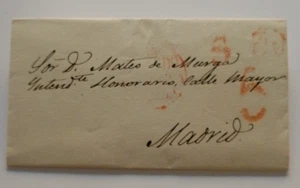 Sor. D. Mateo de Murga
Intend.te Honorario, Calle Mayor
Madrid.